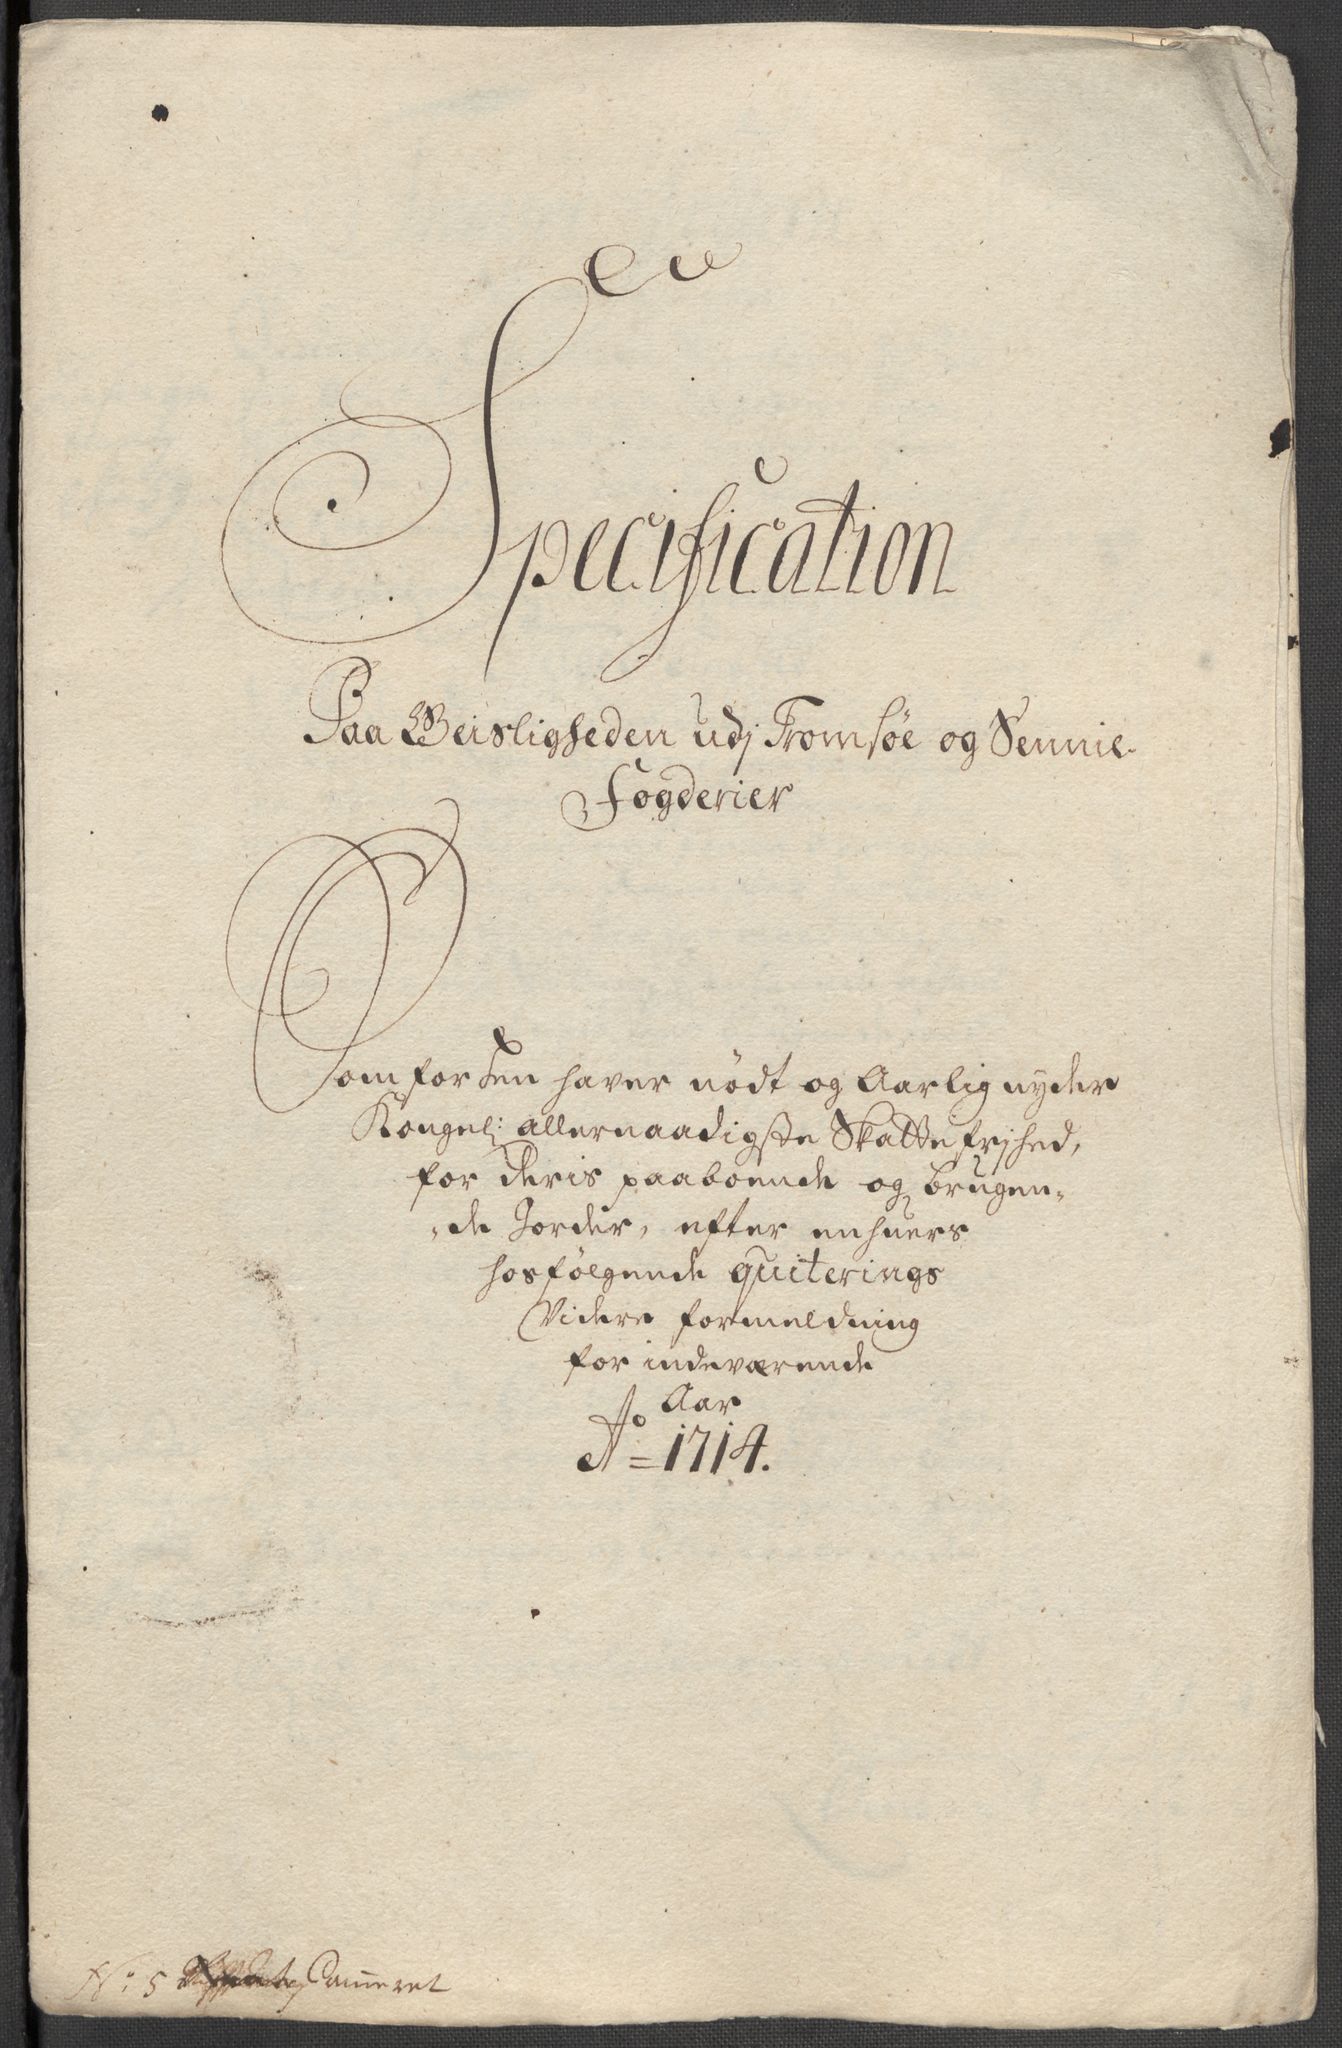 Specification
Paa Geisligheden udj Tromsøe og Sennie-
Fogderier
Som for den haver nödt og Aarlig nyder
Kongel: allernaadigste Skattefrjhed,
for deris paaboende og brugen-
-de Jorder, efter enhuers
hosfølgende quiterings
Videre formeldning
for indeværende
Aar
Ao= 1714.
No: 5 Cammeret